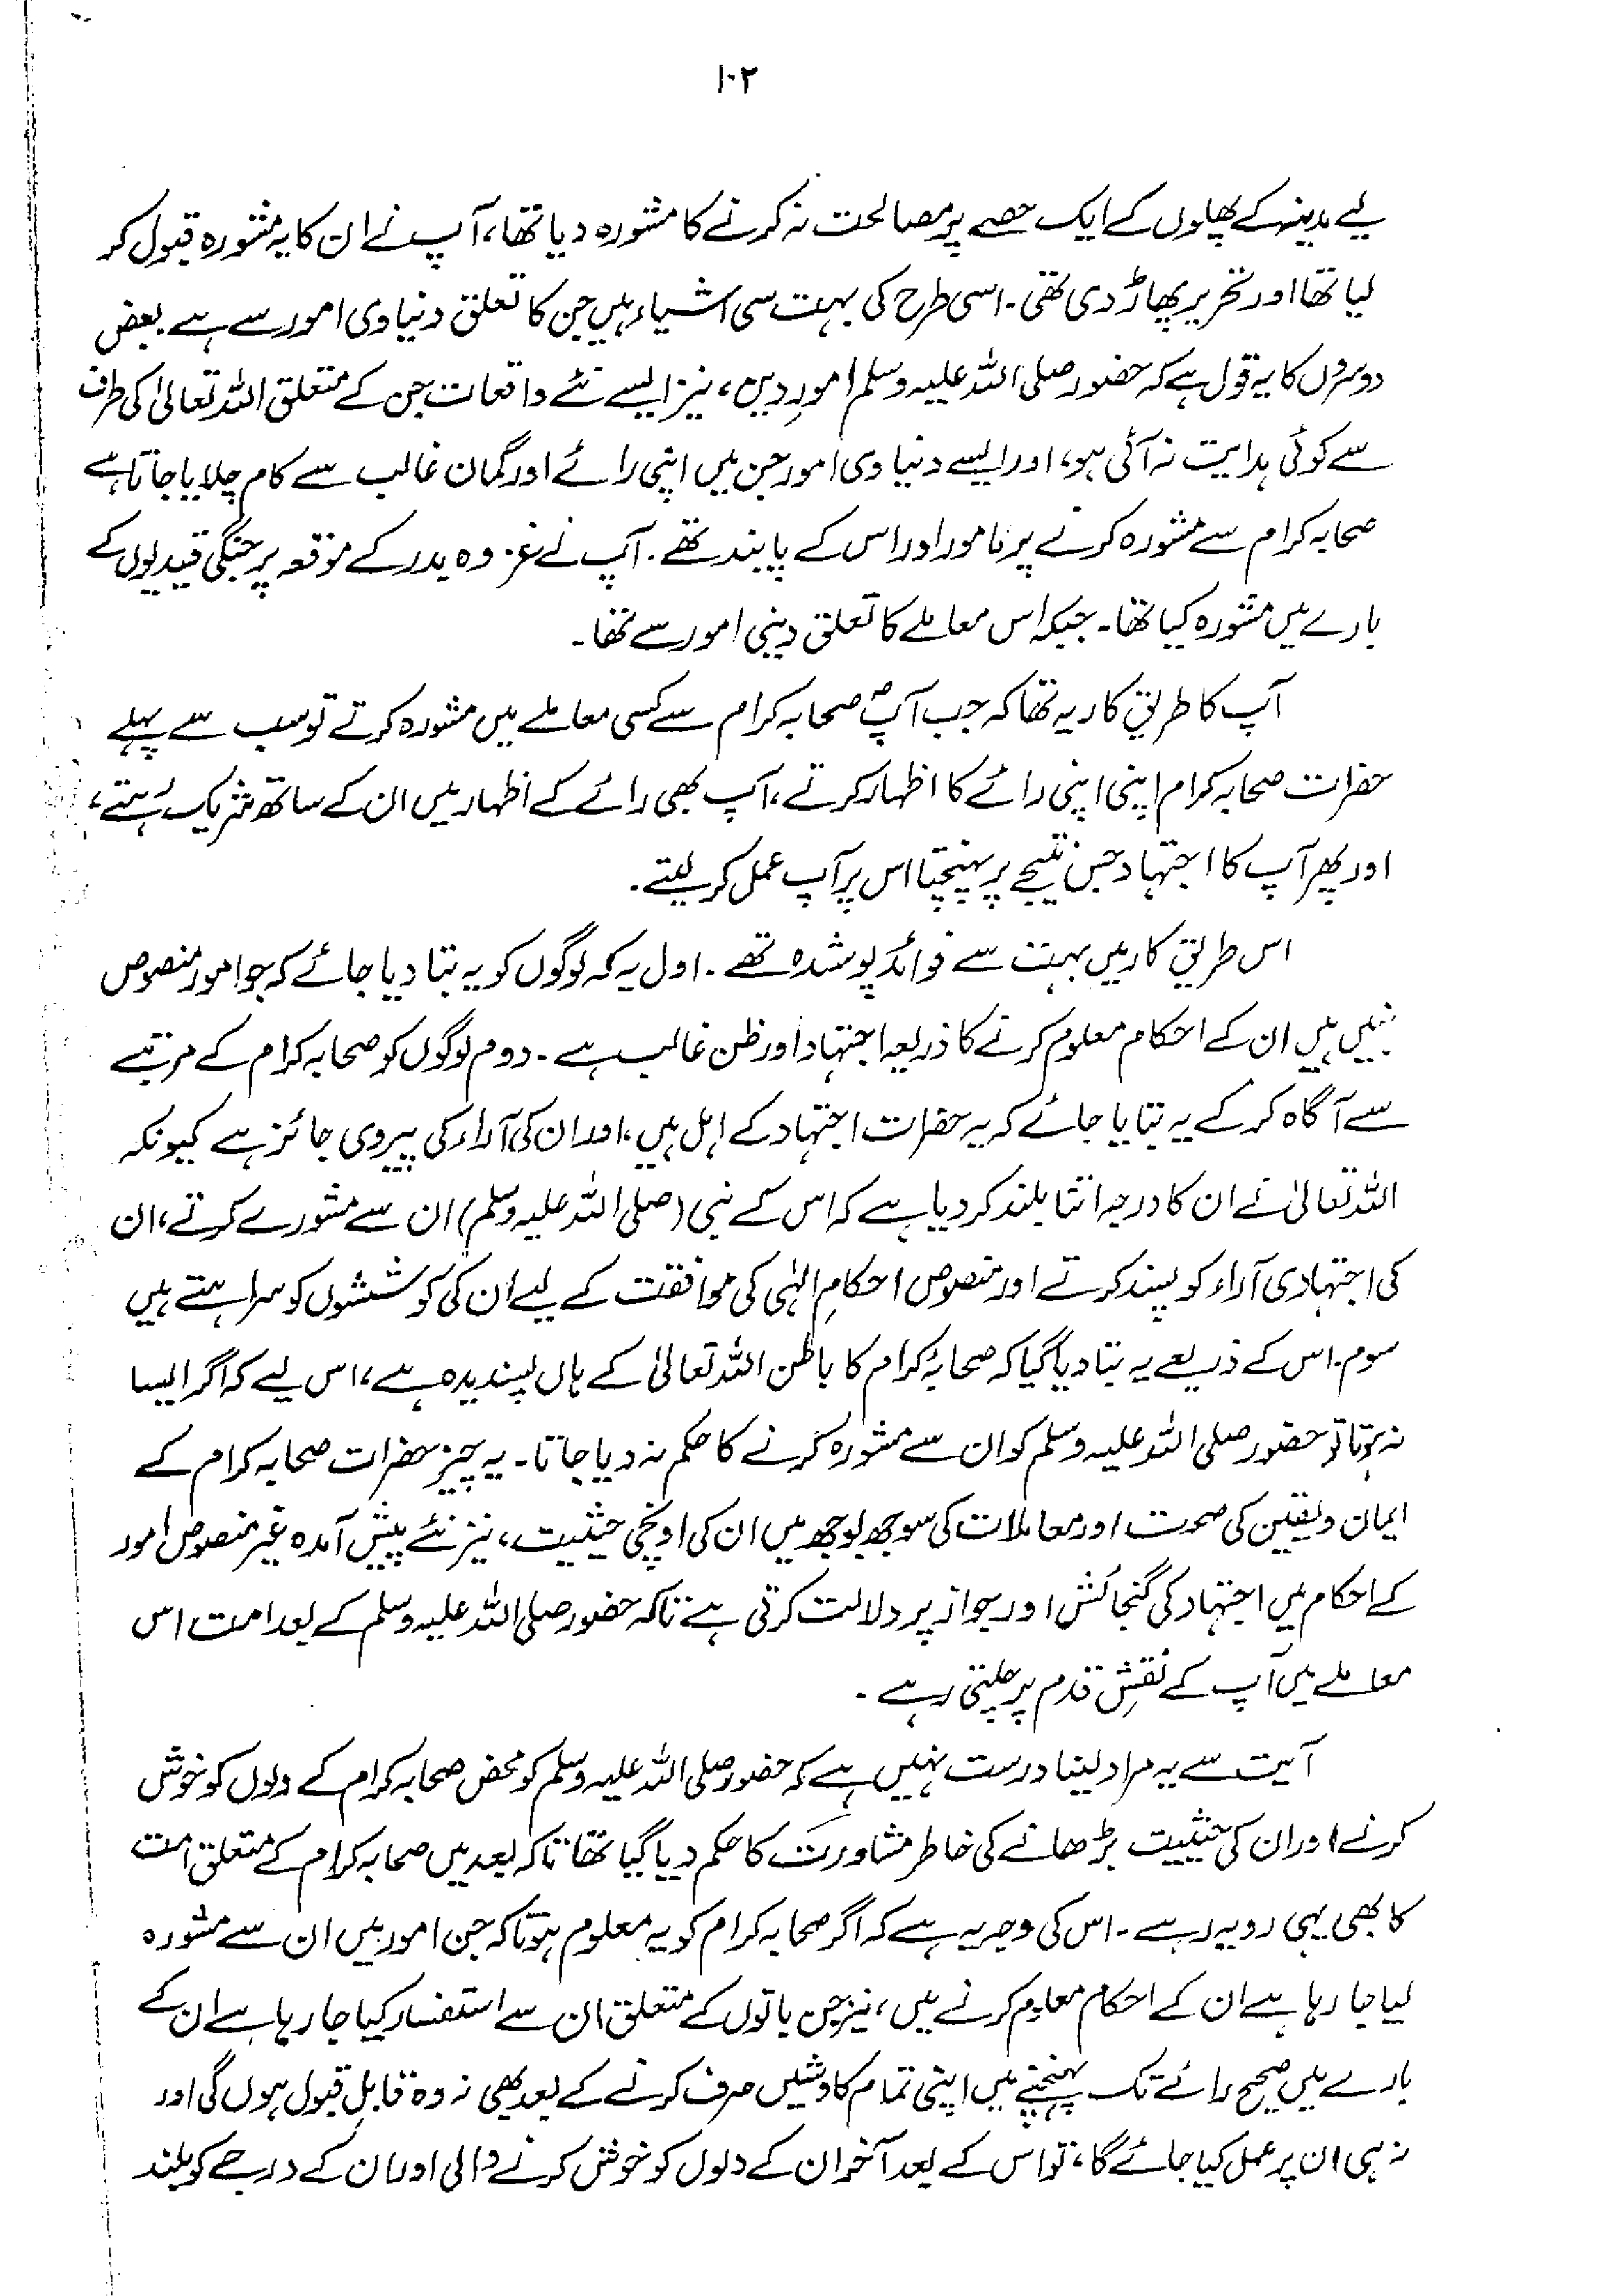 ۱۰۲
لیے مدینہ کے پھلوں کے ایک حصے پر مصالحت نہ کرنے کا مشورہ دیا تھا، آپ نے ان کا یہ مشورہ قبول کر
لیا تھا اور تحریر پھاڑ دی تھی۔ اسی طرح کی بہت سی اشیاء ہیں جن کا تعلق دنیاوی امور سے ہے۔ بعض
دوسروں کا یہ قول ہے کہ حضور صلی اللہ علیہ وسلم امورِ دین، نیز ایسے نئے واقعات جن کے متعلق اللہ تعالیٰ کی طرف
سے کوئی ہدایت نہ آئی ہو، اور ایسے دنیاوی امور جن میں اپنی رائے اور گمان غالب سے کام چلایا جاتا ہے
صحابہ کرام سے مشورہ کرنے پر مامور اور اس کے پابند تھے۔ آپ نے غزوہ بدر کے موقعہ پر جنگی قیدیوں کے
بارے میں مشورہ کیا تھا۔ جبکہ اس معاملے کا تعلق دینی امور سے تھا۔
آپ کا طریق کار یہ تھا کہ جب آپؐ صحابہ کرام سے کسی معاملے میں مشورہ کرتے تو سب سے پہلے
حضرات صحابہ کرام اپنی اپنی رائے کا اظہار کرتے، آپ بھی رائے کے اظہار میں ان کے ساتھ شریک رہتے،
اور پھر آپ کا اجتہاد جس نتیجے پر پہنچتا اس پر آپ عمل کر لیتے۔
اس طریق کار میں بہت سے فوائد پوشدہ تھے۔ اول یہ کہ لوگوں کو یہ بتا دیا جائے کہ جو امور منصوص
نہیں ہیں ان کے احکام معلوم کرنے کا ذریعہ اجتہاد اور ظن غالب ہے۔ دوم لوگوں کو صحابہ کرام کے مرتبے
سے آگاہ کر کے یہ بتایا جائے کہ یہ حضرات اجتہاد کے اہل ہیں، اور ان کی آراء کی پیروی جائز ہے کیونکہ
اللہ تعالیٰ نے ان کا درجہ اتنا بلند کر دیا ہے کہ اس کے نبی (صلی اللہ علیہ وسلم) ان سے مشورے کرتے، ان
کی اجتہادی آراء کو پسند کرتے اور منصوص احکامِ الہٰی کی موافقت کے لیے ان کی کوششوں کو سراہتے ہیں
سوم۔ اس کے ذریعے یہ بتا دیا گیا کہ صحابۂ کرام کا باطن اللہ تعالیٰ کے ہاں پسندیدہ ہے، اس لیے کہ اگر ایسا
نہ ہوتا تو حضور صلی اللہ علیہ وسلم کو ان سے مشورہ کرنے کا حکم نہ دیا جاتا۔ یہ چیز حضرات صحابہ کرام کے
ایمان و یقین کی صحت اور معاملات کی سوجھ بوجھ میں ان کی اونچی حیثیت، نیز نئے پیش آمدہ غیر منصوص امور
کے احکام میں اجتہاد کی گنجائش اور جواز پر دلالت کرتی ہے تاکہ حضور صلی اللہ علیہ وسلم کے بعد امت اس
معاملے میں آپ کے نقشِ قدم پر چلتی رہے۔
آیت سے یہ مراد لینا درست نہیں ہے کہ حضور صلی اللہ علیہ وسلم کو محض صحابہ کرام کے دلوں کو خوش
کرنے اور ان کی حیثیت بڑھانے کی خاطر مشاورت کا حکم دیا گیا تھا تاکہ بعد میں صحابہ کرام کے متعلق امت
کا بھی یہی رویہ رہے۔ اس کی وجہ یہ ہے کہ اگر صحابہ کرام کو یہ معلوم ہوتا کہ جن امور میں ان سے مشورہ
لیا جا رہا ہے ان کے احکام معلوم کرنے میں، نیز جن باتوں کے متعلق ان سے استفسار کیا جا رہا ہے ان کے
بارے میں صحیح رائے تک پہنچنے میں اپنی تمام کاوشیں صرف کرنے کے بعد بھی نہ وہ قابلِ قبول ہوں گی اور
نہ ہی ان پر عمل کیا جائے گا، تو اس کے بعد آخر ان کے دلوں کو خوش کرنے والی اور ان کے درجے کو بلند